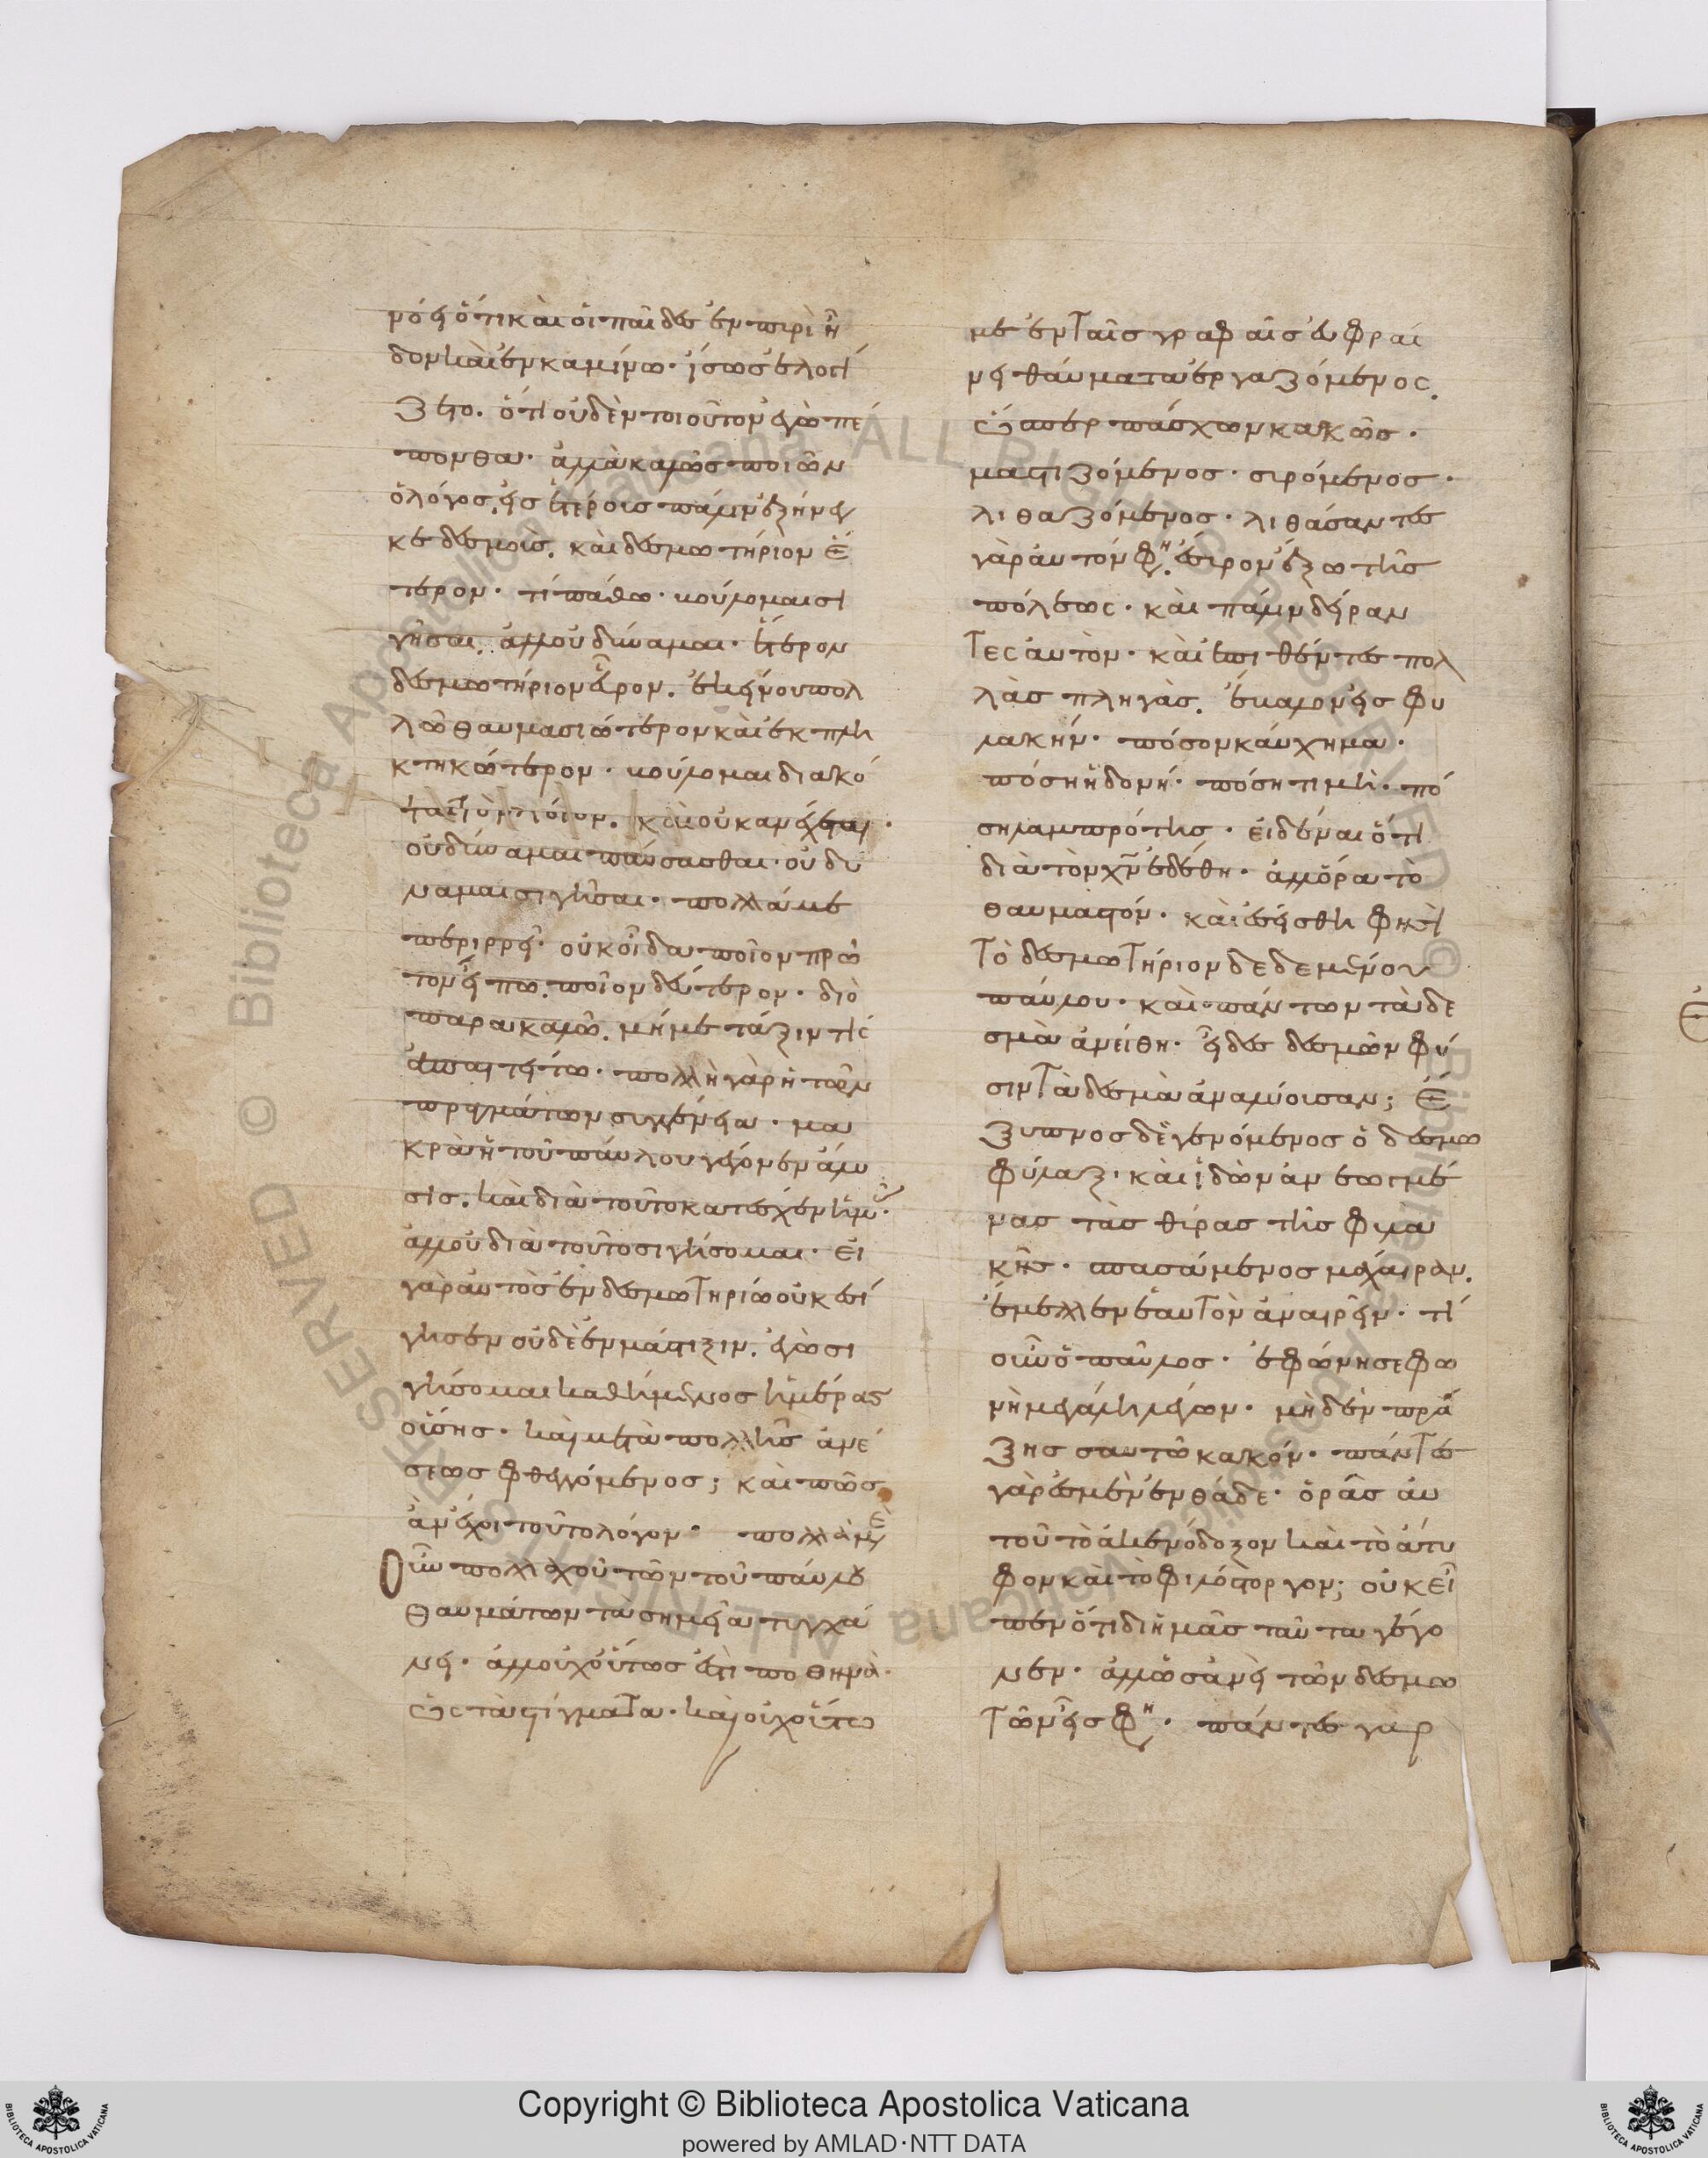 ρὸς ὅτι καὶ οἱ παῖδες ἐν πυρὶ ἦ
δον καὶ ἐν καμίνω· ἴσως ἐλογί
ζετο. ὅτι οὐδὲν τοιοῦτον ἐγὼ πέ
πονθα· ἀλλὰ καλῶς ποιῶν
ὁ λόγος, εἰς ἑτέροις πάλιν ἐξήνεγ
κε δεσμοῖς. καὶ δεσμωτήριον ἕ
τερον· τί πάθω· βούλομαι σι
γῆσαι, ἀλλ οὐ δύναμαι· ἕτερον
δεσμωτήριον εὗρον. ἐκείνου πολ
λῶ θαυμασιώτερον καὶ ἐκπλη
κτηκώτερον· βούλομαι διακό
ψαι τὸν λόγον, καὶ οὐκ ἀνέχεται·
οὐ δύναμαι παύσασθαι· οὐ δύ
ναμαι σιγῆσαι· πολλά με
περιρρεῖ· οὐκ οἶδα ποῖον πρῶ
τον εἴπω. ποῖον δεύτερον· διὸ
παρακαλῶ. μή με τάξιν τίς
ἀπαιτείτω· πολλὴ γὰρ ἡ τῶν
πραγμάτων συγγένεια· μα
κρὰ ἡ τοῦ παύλου γέγονεν ἅλυ
σις. καὶ διὰ τοῦτο κατέσχεν ἡμᾶς·
ἀλλ οὐ διὰ τοῦτο σιγήσομαι· εἰ
γὰρ αὐτὸς ἐν δεσμωτηρίω οὐκ ἐσί
γησεν οὐδὲ ἐν μάστιξιν. ἐγὼ σι
γήσομαι καθήμενος ἡμέρας
οὔσης· καὶ μετὰ πολλῆς ἀνέ
σεως φθεγγόμενος; καὶ πῶς
ἂν ἔχοι τοῦτο λόγον· πολλὰ μὲν
οὖν πολλαχοῦ τῶν τοῦ παύλου
θαυμάτων τὰ σημεῖα τυγχά
νει· ἀλλ οὐχ οὕτως ἐστὶ ποθεινὰ·
ὡς τὰ στίγματα· καὶ οὐχ οὕτω
με ἐν ταῖς γραφαῖς εὐφραί
νει θαύματα ἐργαζόμενος,
ὥσπερ πάσχων κακῶς·
μαστιζόμενος· συρόμενος·
λιθαζόμενος· λιθάσαντες
γὰρ αὐτόν φη. ἔσυρον ἔξω τῆς
πόλεως· καὶ πάλιν δείραν
τες αὐτὸν· καὶ ἐπιθέντες πολ
λὰς πληγὰς. ἔβαλον εἰς φυ
λακήν· πόσον καύχημα·
πόση ἡδονή· πόση τιμὴ· πό
ση λαμπρότης· εἰδέναι ὅτι
διὰ τὸν χν ἐδέθη· ἀλλ ὅρα τὸ
θαυμαστόν· καὶ ἐσείσθη φησὶ
τὸ δεσμωτήριον δεδεμένου
παύλου· καὶ πάντων τὰ δε
σμὰ ἀνείθη· εἶδες δεσμῶν φύ
σιν τὰ δεσμὰ ἀναλύουσαν; ἔ
ξυπνος δὲ γενόμενος ὁ δεσμο
φύλαξ· καὶ ἰδὼν ἀνεωγμέ
νας τὰς θύρας τῆς φυλα
κῆς· σπασάμενος μάχαιραν.
ἔμελλεν ἑαυτὸν ἀναιρεῖν· τί
οὖν ὁ παῦλος· ἐφώνησε φω
νῆ μεγάλη λέγων· μηδὲν πρά
ξης σαυτῶ κακόν· πάντες
γάρ ἐσμεν ἐνθάδε· ὁρᾶς αὐ
τοῦ τὸ ἀκενόδοξον καὶ τὸ ἄτυ
φον καὶ τὸ φιλόστοργον; οὐκ εἶ
πεν ὅτι δι ἡμᾶς ταῦτα γέγο
νεν· ἀλλ ὡσανεὶ τῶν δεσμω
τῶν εἷς φη· πάντες γάρ